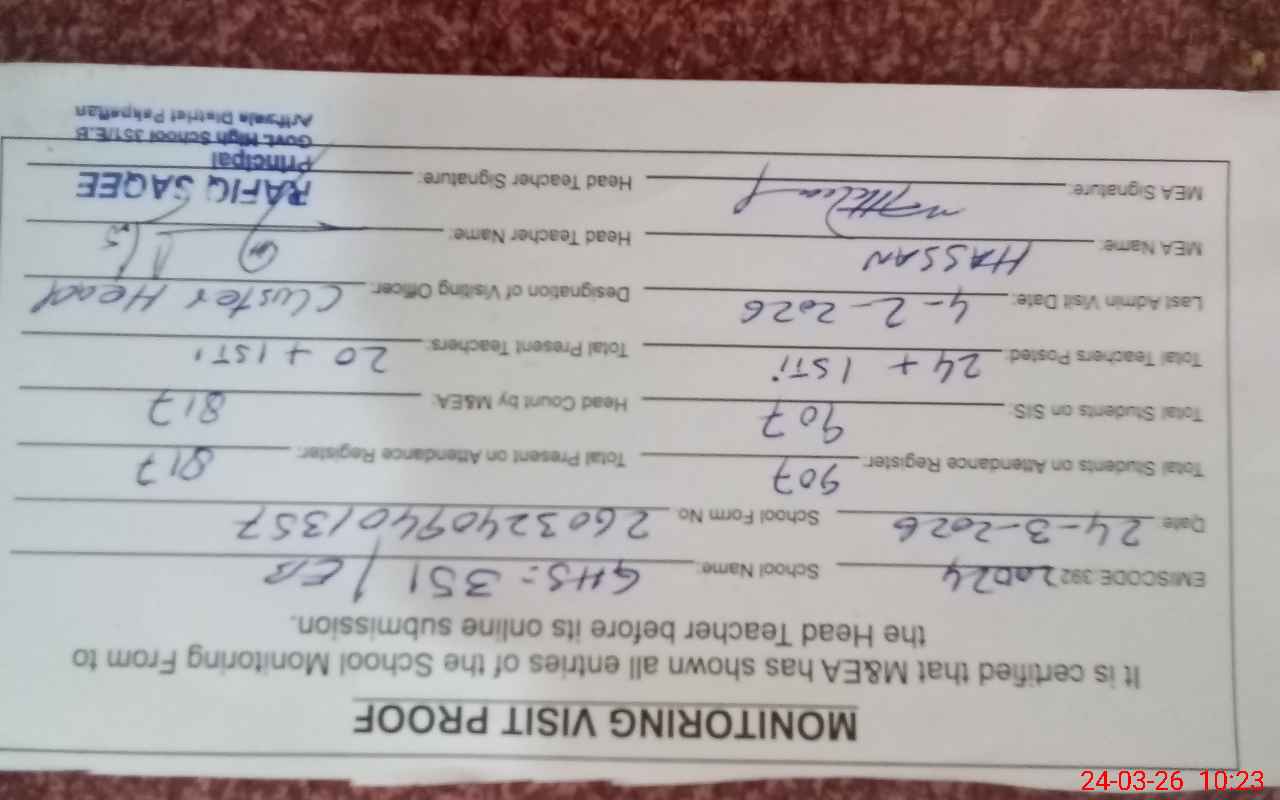 MONITORING VISIT PROOF
It is certified that M&EA has shown all entries of the School Monitoring From to
the Head Teacher before its online submission.
EMISCODE:392 20024 School Name: GHS:- 351/EB
Date: 24-3-2026 School Form No. 2603240940 1357
Total Students on Attendance Register: 907 Total Present on Attendance Register: 817
Total Students on SIS: 907 Head Count by M&EA: 817
Total Teachers Posted: 24 + 1 STi Total Present Teachers: 20 + 1 STi
Last Admin Visit Date: 4-2-2026 Designation of Visiting Officer: Cluster Head
MEA Name: HASSAN Head Teacher Name:
MEA Signature: Head Teacher Signature:
RAFIQ SAQEE
Principal
Govt. High School 351/E.B
Arifwala District Pakpattan
24-03-26 10:23